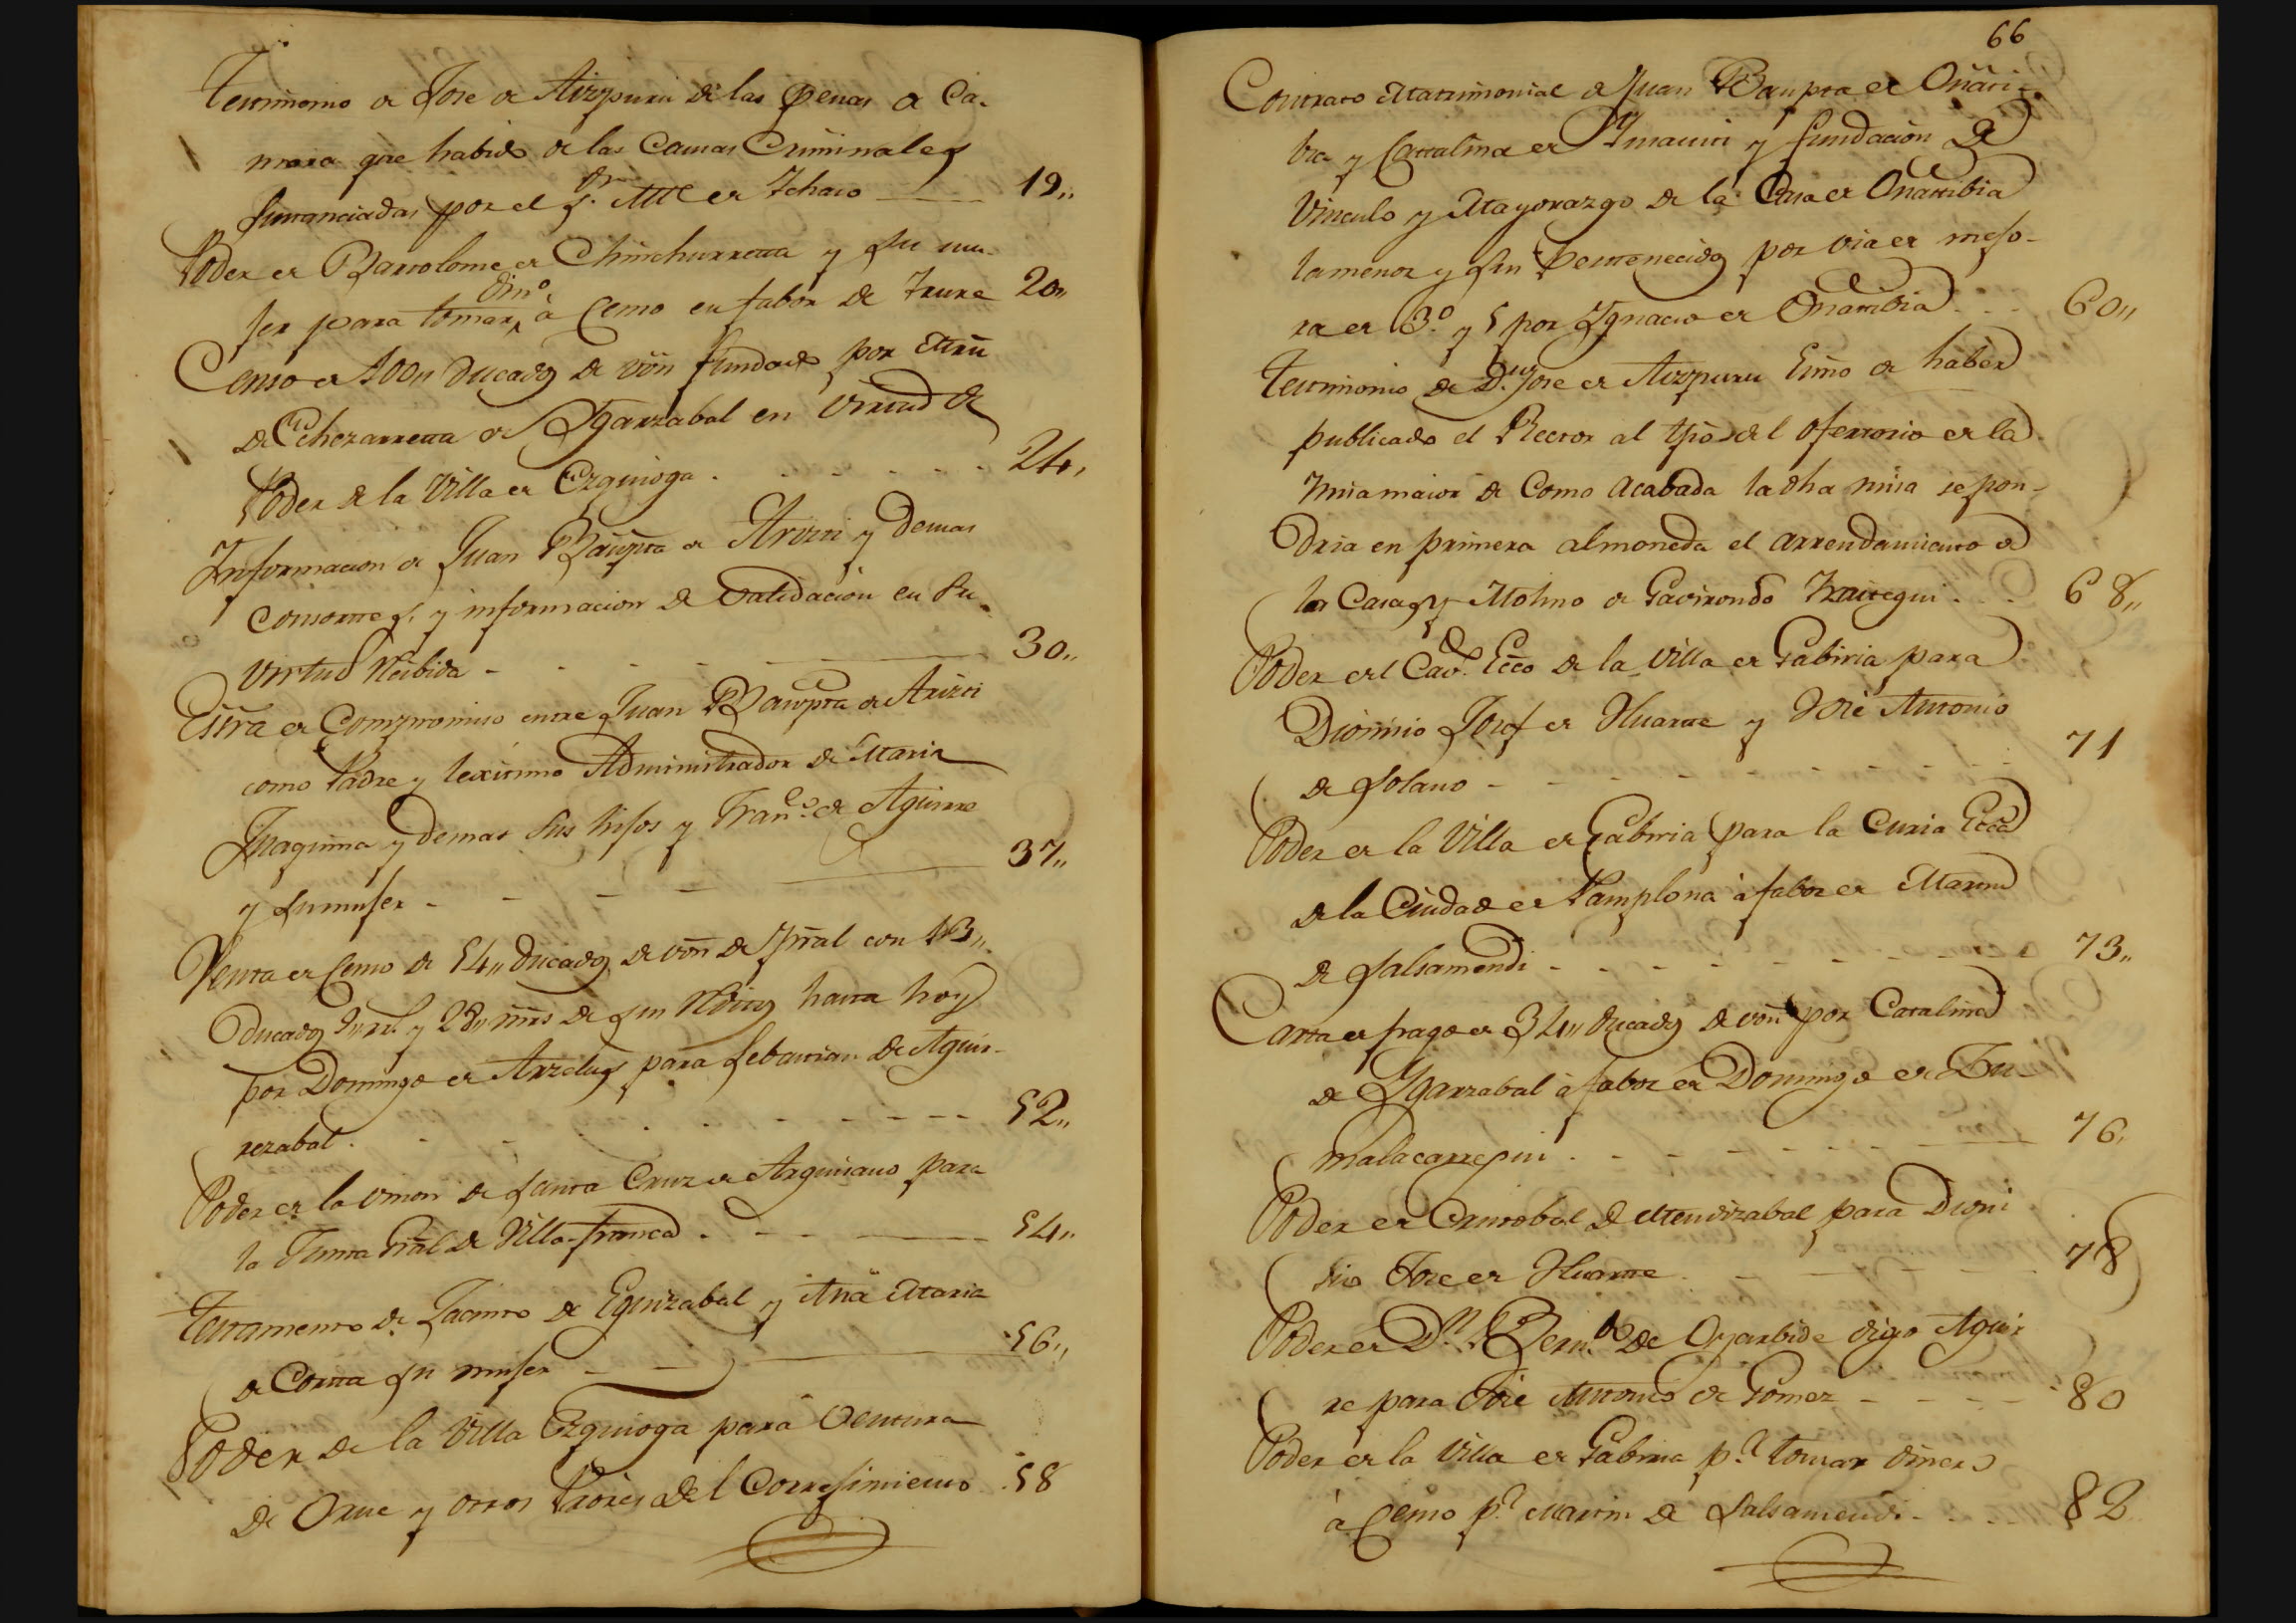 Testimonio de Jose de Aizpuru de las penas de Ca-
mara que habido de las Causas Criminales
sentanciadas por el Sr. Alle de Ichaso 19,,
Poder de Bartolome de Chinchurreta y su mu-
jer para tomar din.o à Censo en fabor de Irure 20,,
Censo de 100,, Ducados de von fundado por Mrn
de Echezarreta de Ygarzabal en virtud de
Poder de la Villa de Ezquioga 24,
Informacion de Juan Baupta de Arizti y demas
Consortes, y informacion de validacion en su
virtud Resibida 30,,
Essra de Compromiso entre Juan Baupta de Arizti
como Padre y lexitimo Administrador de Maria
Juaquina y demas sus hijos y Fran.co de Aguirre
y su mujer 37,,
Venta de Censo de 54,, ducados de von de Prinal con 13,,
ducados y 28,, mrs de sus Reditos hasta hoy
por Domingo de Arzelus para Sebastian de Aguir-
rezabal. 52,,
Poder de la union de Santa Cruz de Arguisano para
la Junta Gral de Villa-franca 54,,
Testamento de Jacinto de Eguizabal y Ana Maria
de Corta su mujer 56,,
Poder de la Villa Ezquioga para Ventura
de Orue y otros Prores del Correjimiento 58
66
Contrato Matrimonial de Juan Baupta de Oñati-
bia y Cattalina de Ymasiti y fundacion de
Vinculo y Mayorazgo de la Casa de Onattibia
lamenor y sus Pertenecidos por via de mejo-
ra de 3.o y 5 por Ygnacio de Onattibia 60,,
Testimonio de Dn Jose de Aizpuru Esno de haber
publicado el Rector al tpo del ofertorio de la
misa maior de Como acabada la dha misa se pon-
dria en primera almoneda el arrendamiento de
las Casas y Molino de Gavirondo Irairegui 68,,
Poder del Cav.do Ecco de la Villa de Gabiria para
Dionisio Josef de Huarte y Jose Antonio
de Solano 71
Poder de la Villa de Gabiria para la Curia Ecca
de la Ciudad de Pamplona à fabor de Martin
de Salsamendi 73,,
Carta de pago de 34,, ducados de von por Catalina
de Ygarzabal à fabor de Domingo de Itu-
malacarregui 76,
Poder de Cristobal de Mendizabal para Dioni
sio Jose de Huarte 78
Poder de Dn. Bern.do de Oyarbide digo Aguir
re para Jose Antonio de Gomez 80
Poder de la Villa de Gabiria p.a tomar dinero
à Censo p.a Martin de Salsamendi 82